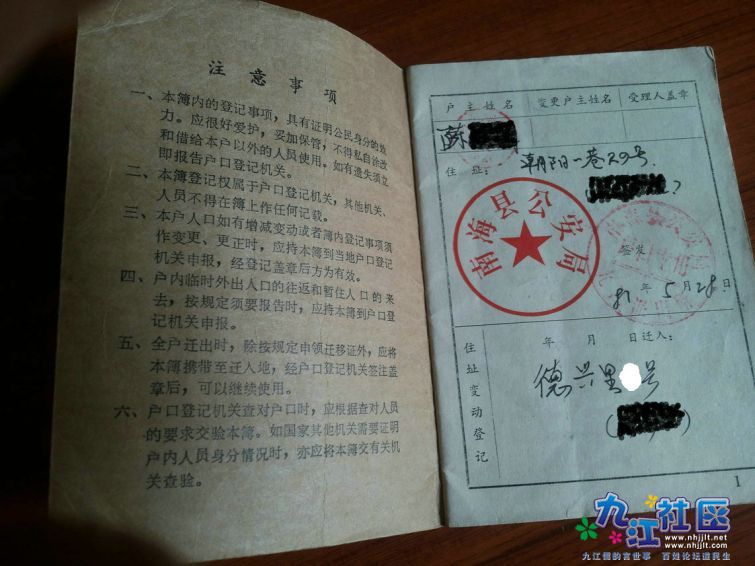 注意事项
一、本簿内的登记事项，具有证明公民身分的效
力。应很好爱护，妥加保管，不得私自涂改
和借给本户以外的人员使用。如有遗失须立
即报告户口登记机关。
二、本簿登记权属于户口登记机关，其他机关、
人员不得在簿上作任何记载。
三、本户人口如有增减变动或者簿内登记事项须
作变更、更正时，应持本簿到当地户口登记
机关申报，经登记盖章后方为有效。
四、户内临时外出人口的往返和暂住人口的来
去，按规定须要报告时，应持本簿到户口登
记机关申报。
五、全户迁出时，除按规定申领迁移证外，应将
本簿携带至迁入地，经户口登记机关签注盖
章后，可以继续使用。
六、户口登记机关查对户口时，应根据查对人员
的要求交验本簿。如国家其他机关需要证明
户内人员身分情况时，亦应将本簿交有关机
关查验。
户主姓名 变更户主姓名 受理人盖章
苏
住址：朝阳一巷
南海县公安局
签发
81年5月28日
年 月 日迁入：
住址变动登记
德兴里 号
1
九江社区
www.nhjjlt.com
www.nhjjlt.net
九江儒韵言世事 百姓论坛道民生